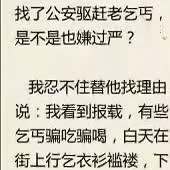 找了公安驱赶老乞丐，
是不是也嫌过严？
我忍不住替他找理由
说：我看到报载，有些
乞丐骗吃骗喝，白天在
街上行乞衣衫褴褛，下